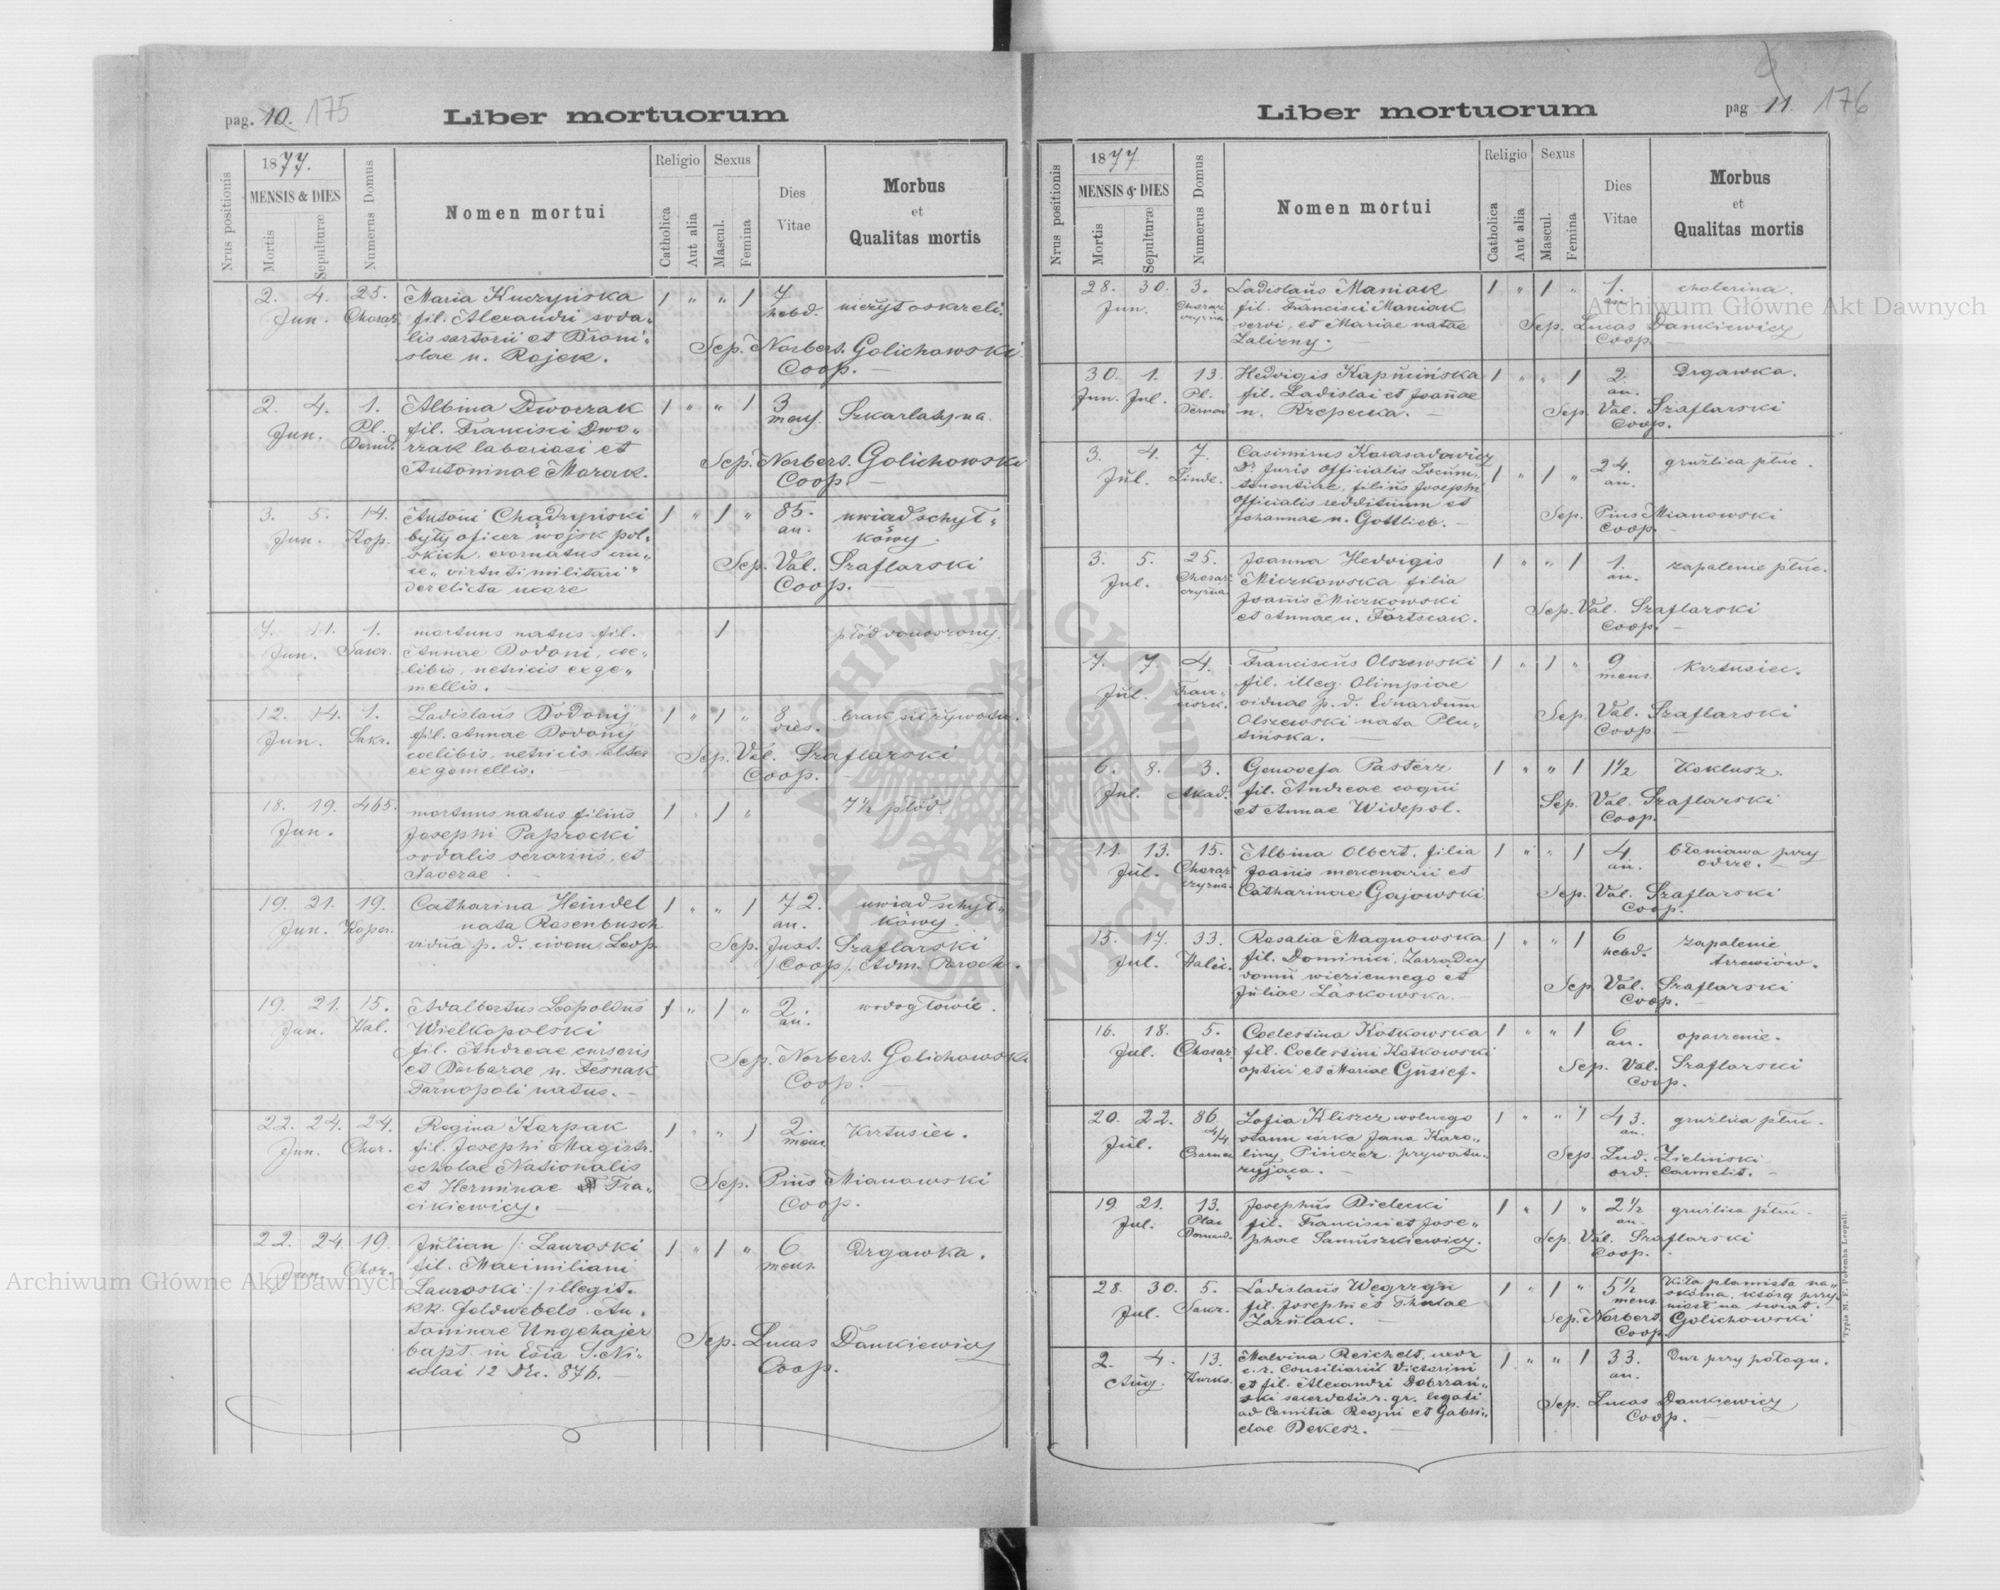 pag. 10. 175
Liber mortuorum
Nrus positionis
1877.
MENSIS & DIES
Mortis
Sepulturæ
Numerus Domus
Nomen mortui
Religio
Catholica
Aut alia
Sexus
Mascul.
Femina
Dies
Vitae
Morbus
et
Qualitas mortis
2. 4. 25. Maria Kuczyńska 1 " " 1 7 nieżyt oskrzeli.
Jun. Chorąż. fil. Alexandri soda- hebd.
lis sartorii et Broni- Sep. Norbert. Golichowski
slae n. Rojek. Coop. —
2. 4. 1. Albina Dworzak 1 " " 1 3 Szkarlatyna.
Jun. Pl. fil. Francisci Dwo- mens.
Bernard. rzak laboriosi et Sep. Norbert. Golichowski
Antoninae Marak. Coop. —
3. 5. 14. Antoni Chądzyński 1 " 1 " 85. uwiąd schył-
Jun. Kop. były oficer wojsk pol- an. kowy.
skich, exornatus cru- Sep. Val. Szaflarski
ce "virtuti militari" Coop. —
derelicta uxore
7. 11. 1. mortuus natus fil. 1 płód donoszony.
Jun. Sakr. Annae Dodoni, coe-
libis, netricis ex ge-
mellis. —
12. 14. 1. Ladislaus Dodonij 1 " 1 " 8 brak sił żywotn.
Jun. Sakr. fil. Annae Dodonij dies.
coelibis, netricis alter Sep. Val. Szaflarski
ex gemellis. — Coop. —
18. 19. 465. mortuus natus filius 1 " 1 " 7½ płód.
Jun. Josephi Paprocki
sodalis serarius, et
Xaverae
19. 21. 19. Catharina Heindel 1 " " 1 72. uwiąd schył-
Jun. Koper. nata Rosenbusch an. kowy.
vidua p. d. civem Leop. Sep. Just. Szaflarski
/Coop/. Adm. Paroch.
19. 21. 15. Adalbertus Leopoldus 1 " 1 " 2. wodogłowie.
Jun. Kal. Wielkopolski an.
fil. Andreae cursoris Sep. Norbert. Golichowski
et Barbarae n. Fesnak Coop. —
Tarnopoli natus. —
22. 24. 24. Regina Karpak 1 " " 1 2. Krztusiec.
Jun. Chor. fil. Josephi Magistr. mens.
scholae Nationalis Sep. Pius Mianowski
et Herminae Fra- Coop.
cikiewicz. —
22. 24. 19. Julian /: Lauroski 1 " 1 " 6 Drgawka.
Jun. Chor. fil. Maximiliani mens.
Lauroski :/ illegit.
kk. feldwebels. An- Sep. Lucas Dankiewicz
toninae Ungehajer Coop.
bapt. in Ecia S. Ni-
colai 12 Dec. 876. —
pag 11. 176
Liber mortuorum
Nrus positionis
1877
MENSIS & DIES
Mortis
Sepulturæ
Numerus Domus
Nomen mortui
Religio
Catholica
Aut alia
Sexus
Mascul.
Femina
Dies
Vitae
Morbus
et
Qualitas mortis
28. 30. 3. Ladislaus Maniak 1 " 1 " 1. cholerina.
Jun. Chorąż- fil. Francisci Maniak an.
czyzna servi, et Mariae natae Sep. Lucas Dankiewicz
Zalizny. — Coop. —
30. 1. 13. Hedvigis Kapuścińska 1 " " 1 2. Drgawka.
Jun. Jul. Pl. fil. Ladislai et Joannae an.
Bernad n. Rzepecka. — Sep. Val. Szaflarski
Coop.
3. 4. 7. Casimirus Karasadowicz 1 " 1 " 24. gruźlica płuc.
Jul. Linde. Dr Juris Officialis Locum- an.
tenentiae, filius Josephi Sep. Pius Mianowski
Officialis reddituum et Coop.
Johannae n. Gottlieb. —
3. 5. 25. Joanna Hedvigis 1 " " 1 1. zapalenie płuc.
Jul. Chorąż Miczkowska filia an.
czyzna Joannis Miczkowski Sep. Val. Szaflarski
et Annae n. Fortsiak. Coop. —
7. 7. 4. Franciscus Olszewski 1 " 1 " 9 Krztusiec.
Jul. Fran- fil. illeg. Olimpiae mens.
ciszk. viduae p. d. Eduardum Sep. Val. Szaflarski
Olszewski nata Plu- Coop —
sińska. —
6. 8. 3. Genovefa Pasterz 1 " " 1 1½ Koklusz.
Jul. Akad. fil. Andreae coqui Sep. Val. Szaflarski
et Annae Widepol. Coop. —
11. 13. 15. Albina Olbert, filia 1 " " 1 4 błoniawa przy
Jul. Chorąż Joannis mercenarii et an. odrze.
czyzna. Catharinae Gajowski Sep. Val. Szaflarski
Coop.
15. 17. 33. Rosalia Magnowska 1 " " 1 6 zapalenie
Jul. Halic. fil. Dominici, Zarządcy hebd. trzewiów.
domu więziennego et Sep. Val. Szaflarski
Juliae Laskowska. — Coop. —
16. 18. 5. Coelestina Kotkowska 1 " " 1 6 oparzenie.
Jul. Chorąż. fil. Coelestini Kotkowski an.
optici et Mariae Gusief. Sep. Val. Szaflarski
Coop.
20. 22. 86 Zofia Kliszcz wolnego 1 " " 1 43. gruźlica płuc.
Jul. 4/4 stanu córka Jana Karo- an.
liny Pińczer, prywatu- Sep. Lud. Zieliński
zyjąca. — ord. Carmelit. —
19. 21. 13. Josephus Bielecki 1 " 1 " 2½ gruźlica płuc.
Jul. Plac fil. Francisci et Jose- an.
Bernad. phae Januszkiewicz. Sep. Val. Szaflarski
Coop. —
28. 30. 5. Ladislaus Węgrzyn 1 " 1 " 5½ Kiła plamista na-
Jul. Sakr. fil. Josephi et Theclae mens. skórna, którą przy-
Zarulak. niósł na świat.
Sep. Norbert. Golichowski
Coop.
2. 4. 13. Malvina Reichelt, uxor 1 " " 1 33. Dur przy połogu.
Aug. Kurko. c. r. Consiliarii Victorini an.
et fil. Alexandri Dobrzań- Sep. Lucas Dankiewicz
ski sacerdotis r. gr. legati Coop. —
ad Comitia Regni et Gabri-
elae Bekesz. —
Typis M. F. Poremba Leopoli.
Archiwum Główne Akt Dawnych
Archiwum Główne Akt Dawnych
ARCHIWUM GŁÓWNE AKT DAWNYCH